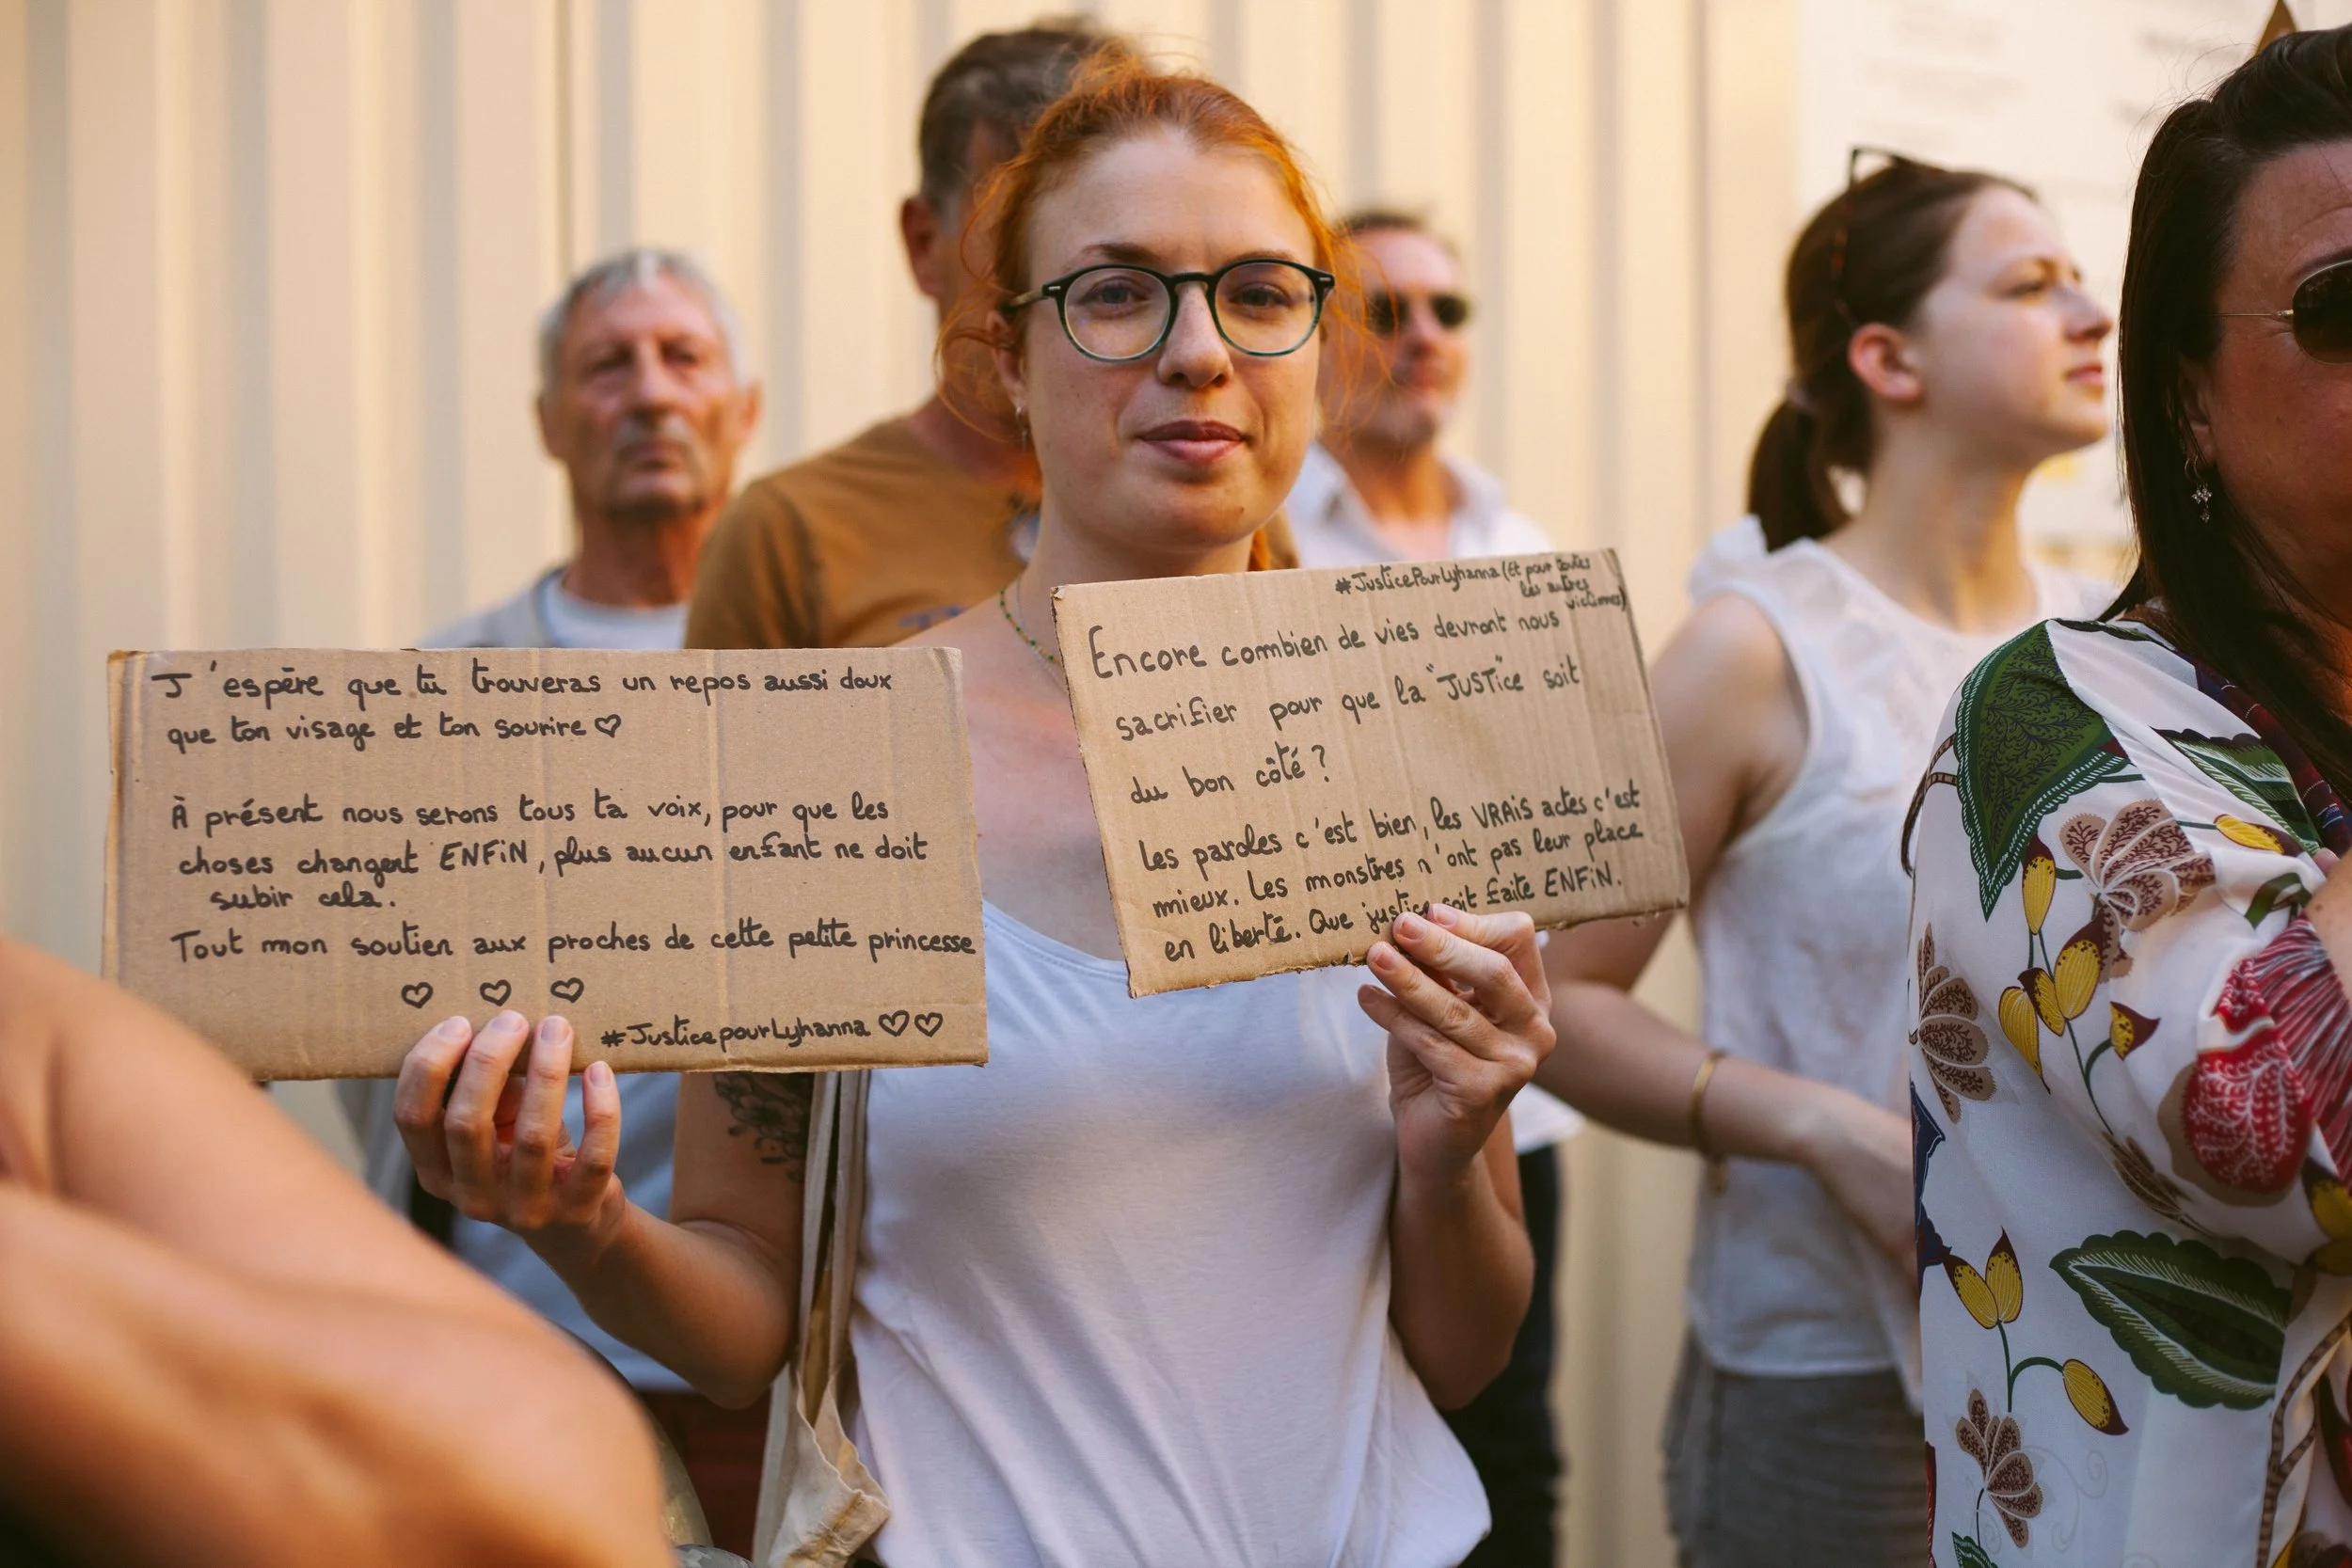 J'espère que tu trouveras un repos aussi doux
que ton visage et ton sourire ♡
À présent nous serons tous ta voix, pour que les
choses changent ENFiN, plus aucun enfant ne doit
subir cela.
Tout mon soutien aux proches de cette petite princesse
♡ ♡ ♡
#JusticepourLyhanna ♡♡
#JusticePourLyhanna (Et pour toutes
les autres
victimes)
Encore combien de vies devront nous
sacrifier pour que la "JUSTice" soit
du bon côté ?
Les paroles c'est bien, les VRAiS actes c'est
mieux. Les monstres n'ont pas leur place
en liberté. Que justice soit faite ENFiN.